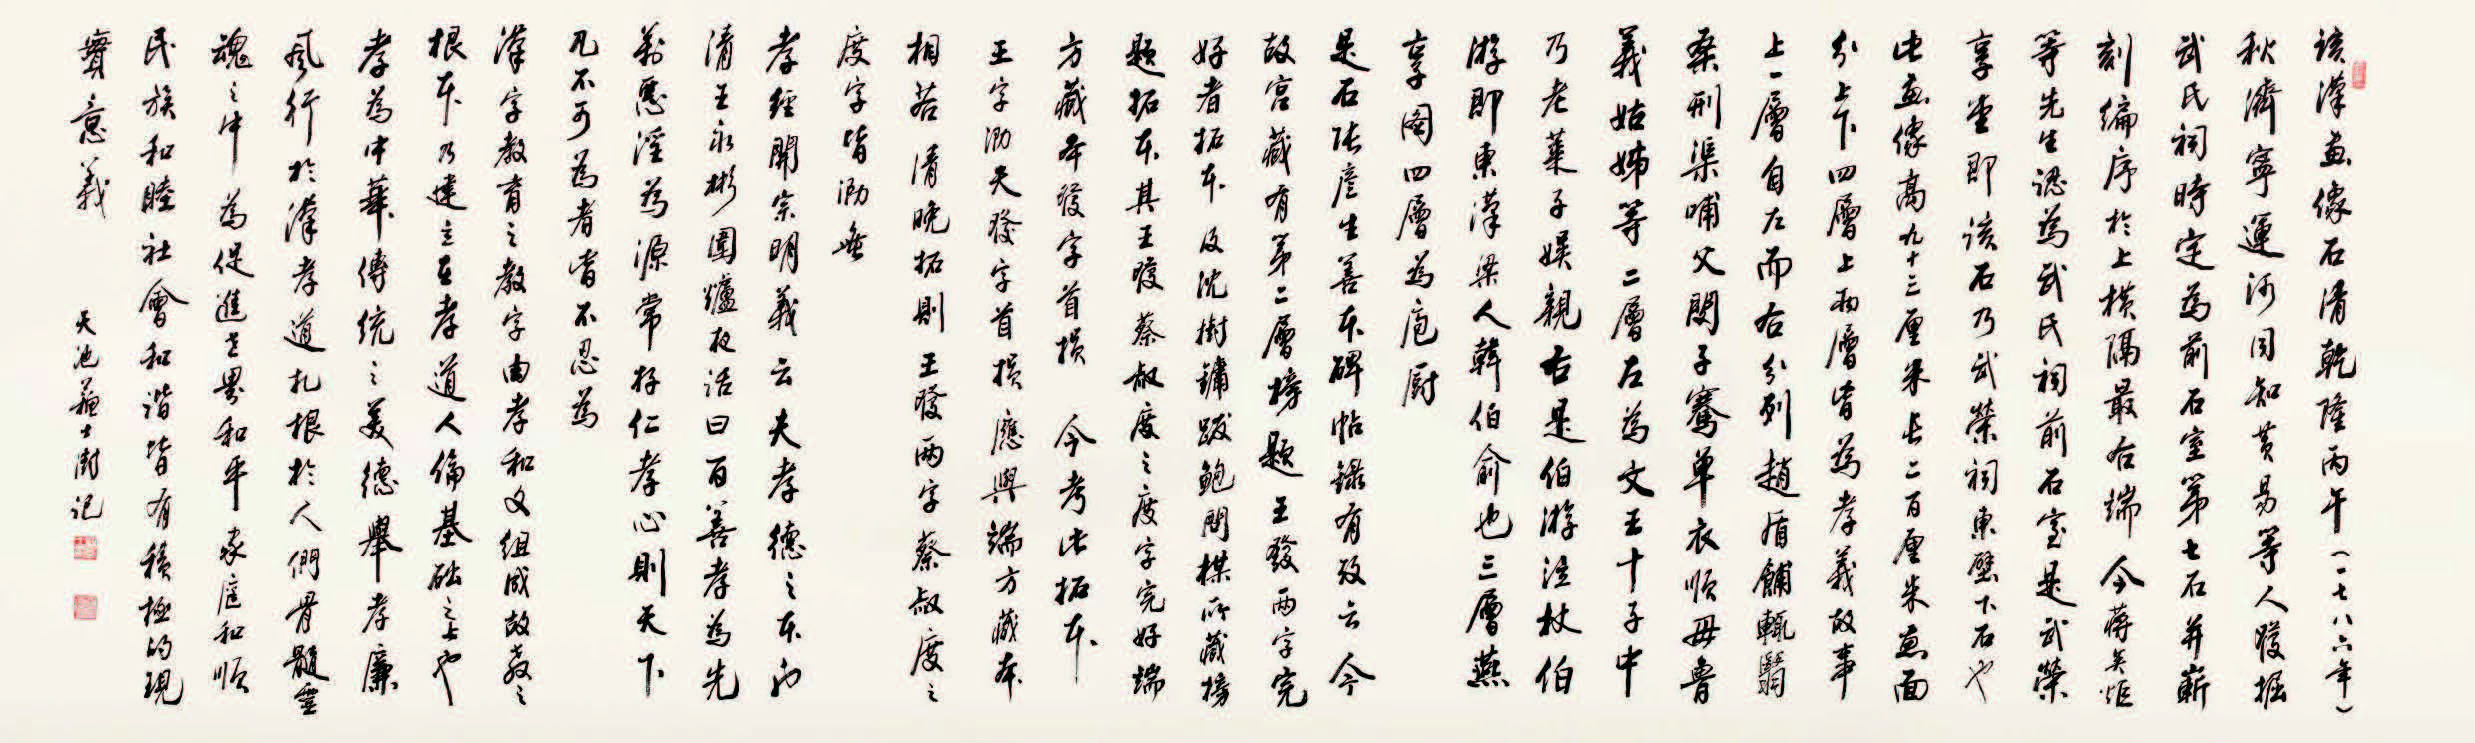 該漢畫像石清乾隆丙午(一七八六年)
秋濟寧運河同知黃易等人發掘
武氏祠時定為前石室第七石并嶄
刻編序於上橫隔最右端今蔣英炬
等先生認為武氏祠前石室是武榮
享堂即該石乃武榮祠東壁下石也
此畫像高九十三厘米長二百厘米畫面
分上下四層上兩層皆為孝義故事
上一層自左而右分列趙盾餔輒翳
桑刑渠哺父閔子騫單衣順母魯
義姑姊等二層左為文王十子中
乃老萊子娛親右是伯游泣杖伯
游即東漢梁人韓伯俞也三層燕
享圖四層為庖廚
是石張彥生善本碑帖錄有考云今
故宮藏有第二層榜題王發兩字完
好者拓本及沈樹鏞跋鮑問楳所藏榜
題拓本其王發蔡叔度之度字完好端
方藏本發字首損 今考此拓本
王字泐天發字首損應與端方藏本
相若清晚拓則王發兩字蔡叔度之
度字皆泐無
孝經開宗明義云夫孝德之本也
清王永彬圍爐夜話曰百善孝為先
萬惡淫為源常存仁孝心則天下
凡不可為者皆不忍為
漢字教育之教字由孝和文組成故教之
根本乃建立在孝道人倫基礎之上也
孝為中華傳統之美德舉孝廉
風行於漢孝道扎根於人們骨髓靈
魂之中為促進世界和平家庭和順
民族和睦社會和諧皆有積極的現
實意義
天池 士澍記